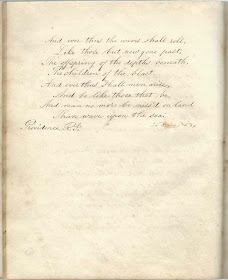 And ever thus the waves shall roll,
Like those but now gone past;
The offspring of the depths beneath,
The children of the blast.
And ever thus shall men arise,
And be like those that be,
And man no more be miss'd on land
Than wave upon the sea.
Providence R.I.